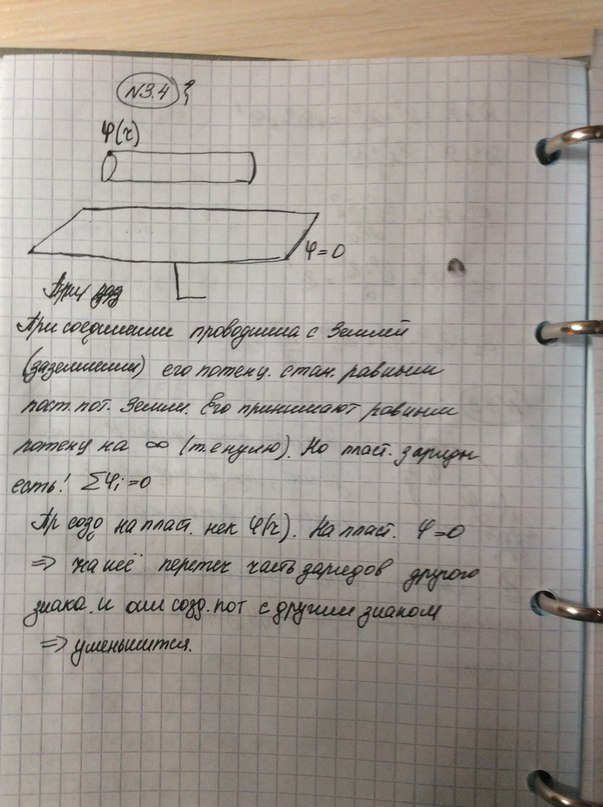 N3.4
φ(r)
φ=0
При
При соединении проводника с Землей
(заземлении) его потенц. стан. равным
пост. пот. Земли. Его принимают равным
потенц на ∞ (т.е нулю). Но пласт. заряды
есть! Σφi=0
Пр созд на пласт. нек φ(r). На пласт. φ=0
=> на неё перетек часть зарядов другого
знака. и они созд. пот с другим знаком
=> уменьшится.